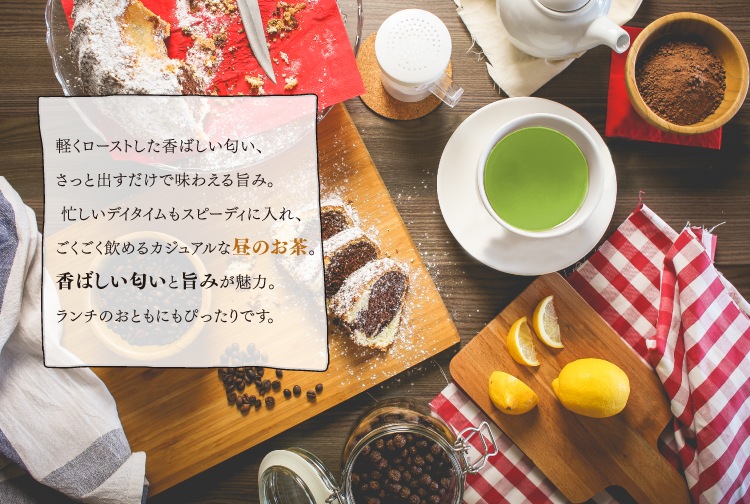 軽くローストした香ばしい匂い、
さっと出すだけで味わえる旨み。
忙しいデイタイムもスピーディに入れ、
ごくごく飲めるカジュアルな昼のお茶。
香ばしい匂いと旨みが魅力。
ランチのおともにもぴったりです。